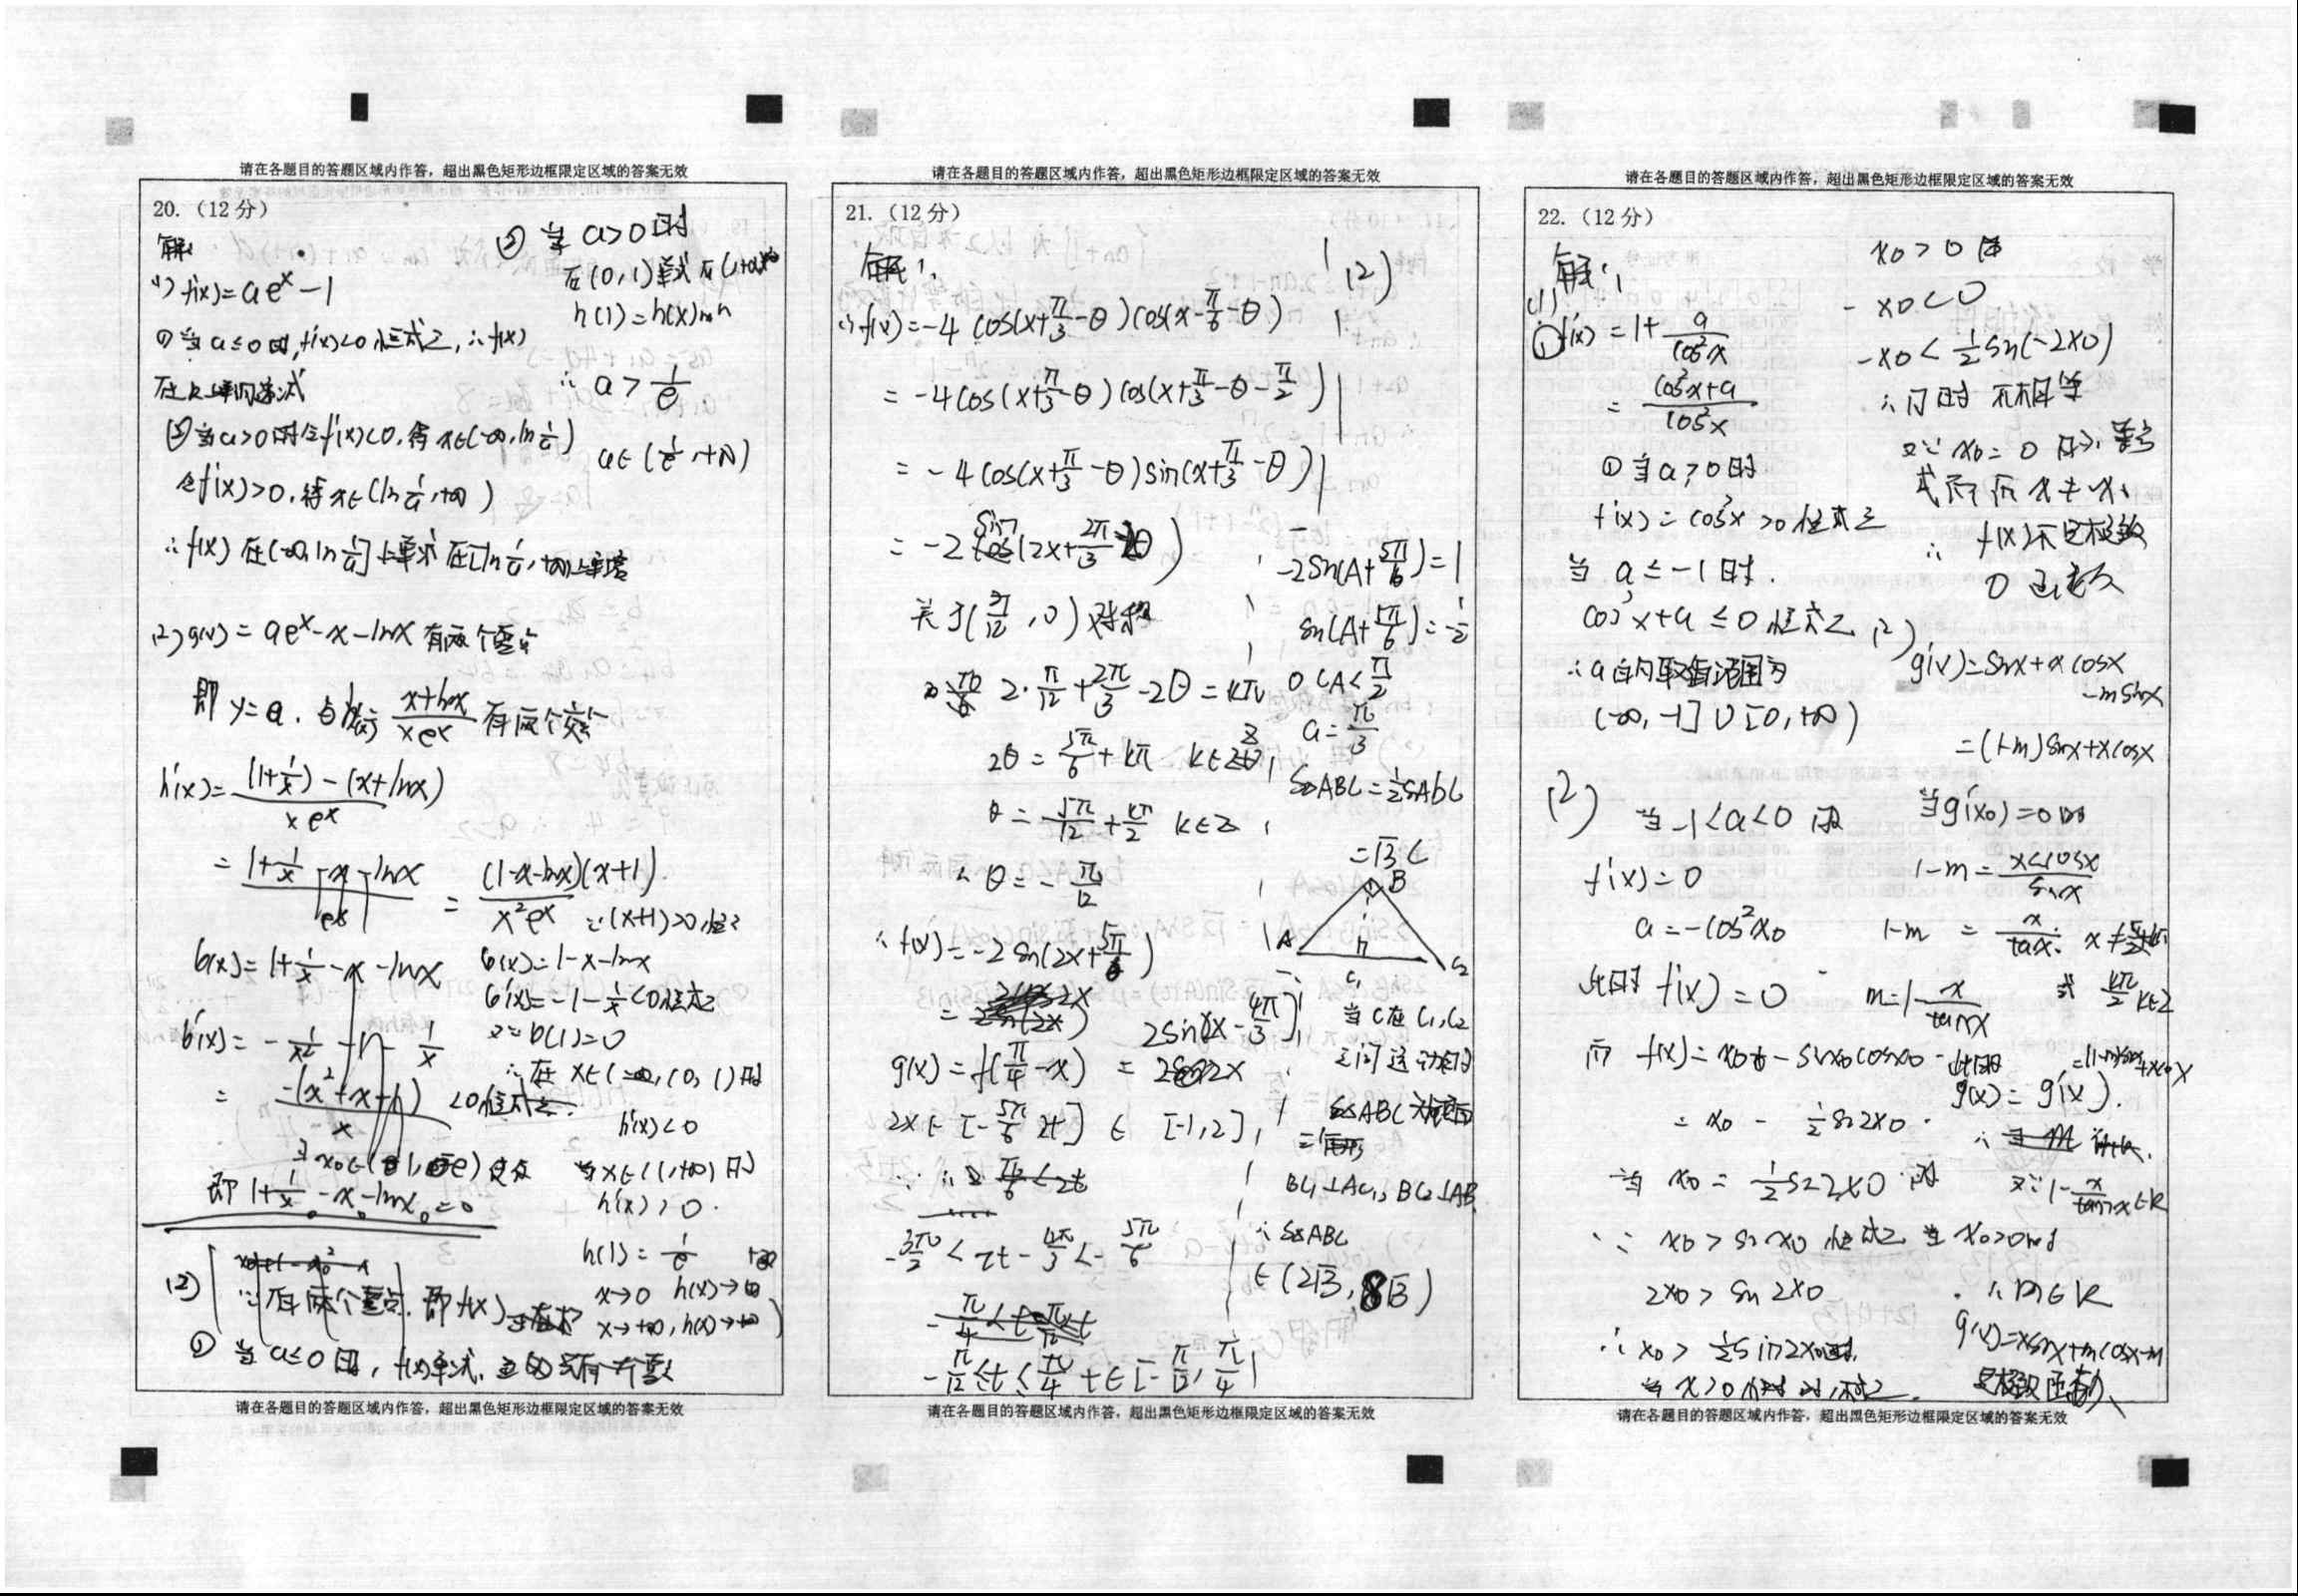 请在各题目的答题区域内作答，超出黑色矩形边框限定区域的答案无效
20.（12 分）
解
(1) f'(x)=ae^x-1
① 当 a≤0 时, f'(x)<0 恒成立, ∴f(x)
② 当 a>0 时 令 f'(x)<0, 得 x∈(-∞, ln 1/a)
令 f'(x)>0, 得 x∈(ln 1/a, +∞)
∴f(x) 在 (-∞, ln 1/a] 上单减 在[ln 1/a, +∞)上单增
(2) g(x) = ae^x-x-lnx 有两个零点
即 y=a. 与 h(x) (x+lnx)/(xe^x) 有两个交点
h'(x)= ((1+1/x)-(x+lnx))/(xe^x)
= (1+1/x-x-lnx)/(e^x) = ((1-x-lnx)(x+1))/(x²e^x)
∵(x+1)>0 恒立
b(x)=1+1/x-x-lnx
b'(x)=-1/x²-1-1/x
= -(x²+x+1)/x <0 恒成立.
即 1+1/x₀-x₀-lnx₀=0
b(x)=1-x-lnx
b'(x)=-1-1/x<0 恒成立
又∵b(1)=0
∴在 x∈(0, 1) 时
h'(x)<0
当x∈(1,+∞) 时
h'(x)>0.
h(1)=1/e
x→0 h(x)→
x→+∞, h(x)→
(2)
∵有两个零点. 即 f(x)
① 当 a≤0 时, f(x)单减.
② 当 a>0 时
在(0,1)单减 在(1,+∞)
h(1)=h(x)min
∴ a>1/e
a∈(1/e,+∞)
请在各题目的答题区域内作答，超出黑色矩形边框限定区域的答案无效
请在各题目的答题区域内作答，超出黑色矩形边框限定区域的答案无效
21.（12 分）
解:
(1) f(x)=-4cos(x+π/3-θ)cos(x-π/6-θ)
=-4cos(x+π/3-θ)cos(x+π/3-θ-π/2)
=-4cos(x+π/3-θ)sin(x+π/3-θ)
=-2sin(2x+2π/3-2θ)
关于(π/12,0)对称
2·π/12+2π/3-2θ=kπ
2θ=5π/6+kπ k∈Z
θ=5π/12+kπ/2 k∈Z
∴θ=-π/12
∴f(x)=-2sin(2x+5π/6)
2sin(2x-4π/3)
g(x)=f(π/4-x)
2x∈[-5π/6, 2t] ∈[-1,2],
-3π/2<2t-4π/3<-5π/6
-π/12≤t≤π/4 t∈[-π/12, π/4]
(2)
-2sin(A+5π/6)=1
sin(A+5π/6)=-1/2
0<A<π/2
a=π/3
S△ABC=1/2sinAbc
=√3c
B
A
h
C₁
C₂
当C在C₁,C₂
之间运动时
BC₁⊥AC₁, BC₂⊥AB
∴S△ABC
∈(2√3, 8√3)
请在各题目的答题区域内作答，超出黑色矩形边框限定区域的答案无效
请在各题目的答题区域内作答，超出黑色矩形边框限定区域的答案无效
22.（12 分）
解:
(1)
① f'(x)=1+a/cos²x
=(cos²x+a)/cos²x
① 当a≥0时
f'(x)=cos²x>0 恒成立
当 a≤-1时.
cos²x+a≤0 恒成立
∴a的取值范围为
(-∞,-1]∪[0,+∞)
(2)
当-1<a<0 时
f'(x)=0
a=-cos²x₀
此时 f'(x)=0
而 f(x)=x₀-sinx₀cosx₀
=x₀-1/2sin2x₀.
当 x₀=1/2sin2x₀ 时
∵ x₀>sinx₀ 恒成立 当x₀>0时
2x₀>sin2x₀
∴x₀>1/2sin2x₀
x₀>0 时
-x₀<0
-x₀<1/2sin(-2x₀)
∴同时 不相等
又∵x₀=0 时, 等号
∴ f(x)不是极致
(2)
g'(x)=sinx+xcosx
-msinx
=(1-m)sinx+xcosx
当g'(x₀)=0时
1-m=xcosx/sinx
1-m=x/tanx.
kπ/2 k∈Z
m=1-x/tanx
g(x)=g'(x).
又∵1-x/tanx∈R
∴m∈R
g(x)=xsinx+mcosx-m
是极致函数
请在各题目的答题区域内作答，超出黑色矩形边框限定区域的答案无效